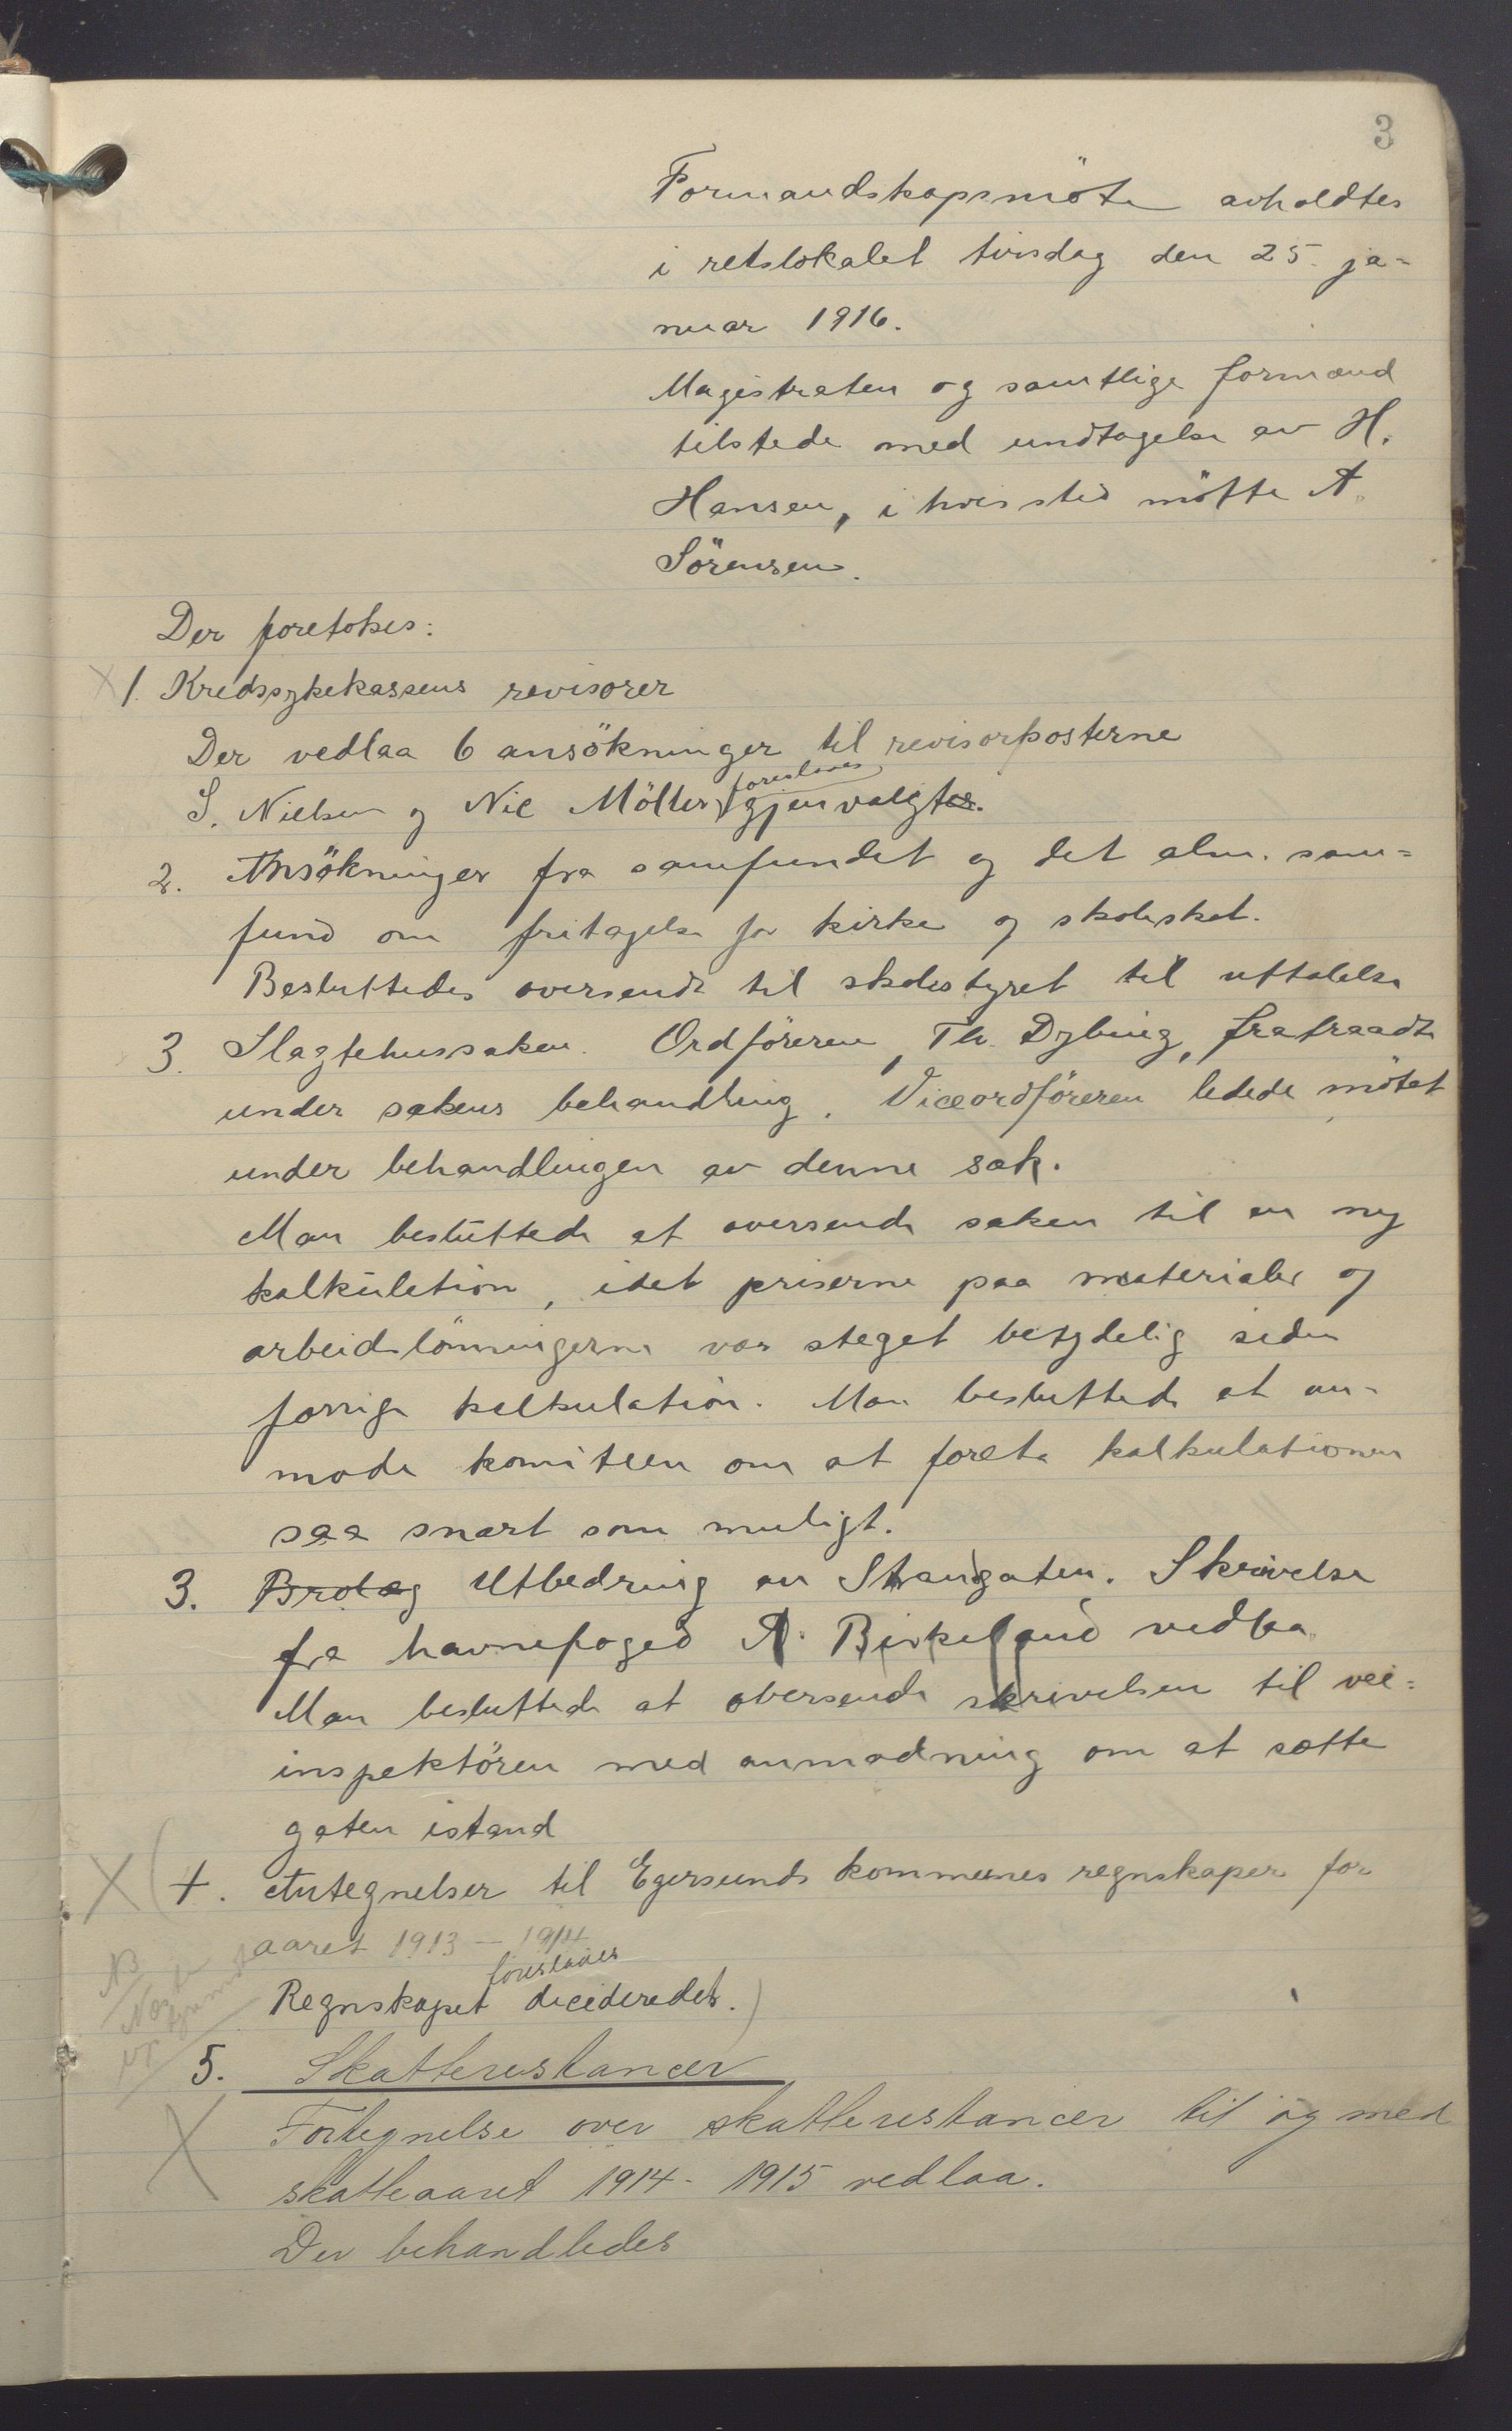 3
Formandskapsmöte avholdtes
i retslokalet tirsdag den 25. ja=
nuar 1916.
Magistraten og samtlige formænd
tilstede med undtagelse av H.
Hansen, i hvis sted mötte A.
Sörensen.
Der foretokes:
1. Kredssykekassens revisorer
Der vedlaa 6 ansökninger til revisorposterne
foreslaaes
S. Nielsen og Nic Möller gjenvalgtes.
2. Ansökninger fra samfundet og det alm. sam=
fund om fritagelse for kirke og skoleskat.
Besluttedes oversendt til skolestyret til uttalelse
3. Slagtehussaken. Ordföreren, Th. Dybing, fratraadte
under sakens behandling. Viceordföreren ledede mötet
under behandlingen av denne sak.
Man besluttede at oversende saken til en ny
kalkulation, idet priserne paa materialer og
arbeidslönningerne var steget betydelig siden
forrige kalkulation. Man besluttede at an=
mode komiteen om at foreta kalkulationen
saa snart som muligt.
3. Brolæg Utbedring av Strandgaten. Skrivelse
fra havnefoged A. Birkeland vedlaa
Man besluttede at oversende skrivelsen til vei=
inspektören med anmodning om at sætte
gaten istand
4. Antegnelser til Egersunds kommunes regnskaper for
aaret 1913 - 1914
foreslaaes
Regnskapet decideredes.)
NB
Næste
5. Skatterestancer
Fortegnelse over skatterestancer til og med
skatteaaret 1914 - 1915 vedlaa.
Der behandledes